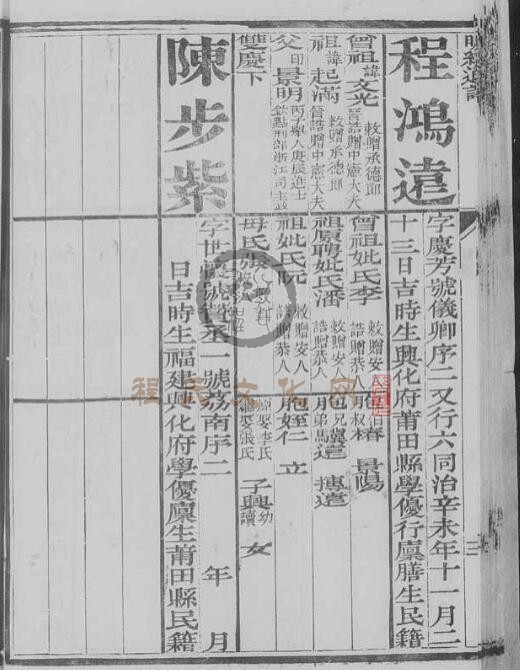 程鴻遠
字慶芳號儀卿序二又行六同治辛未年十一月二
十三日吉時生興化府莆田縣學優行廩膳生民籍
曾祖諱文光 敕贈承德郎 晉誥贈中憲大夫
曾祖妣氏李 敕贈安人 誥贈恭人
椿 景陽
祖諱起滿 敕贈承德郎 晉誥贈中憲大夫
祖原聘妣氏潘 敕贈安人 誥贈恭人
胞弟馬遠 摶遠
父印景明 丙子舉人庚辰進士 欽點刑部浙江司主政
祖妣氏阮 敕贈安人 誥贈恭人
胞姪仁 立
雙慶下
母氏張
原娶李氏 繼娶張氏
子興 幼讀 女
陳步紫
一號荔南序二 年 月
日吉時生福建興化府學優廩生莆田縣民籍
程氏文化网